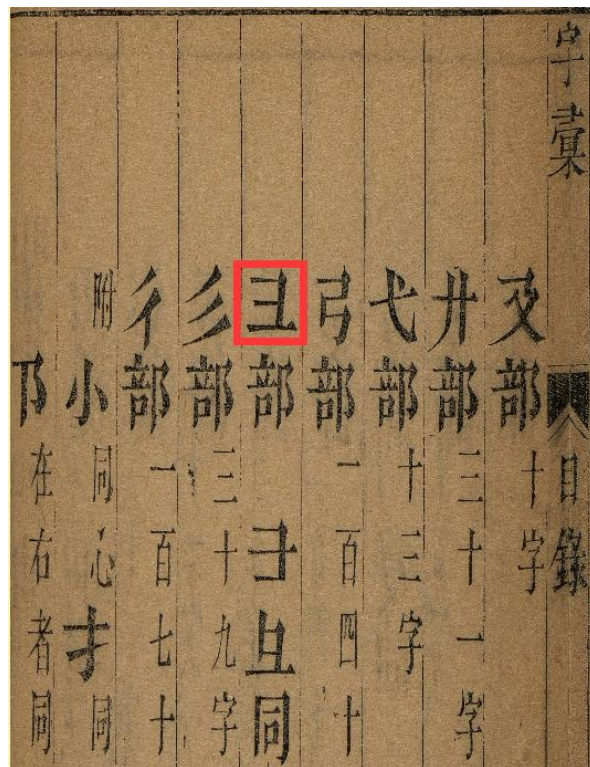 字彙 目錄
廴部 十字
廾部 三十一字
弋部 十三字
弓部 一百四十
彐部 彐彑同
彡部 三十九字
彳部 一百七十
附 忄同心 扌同
阝在右者同